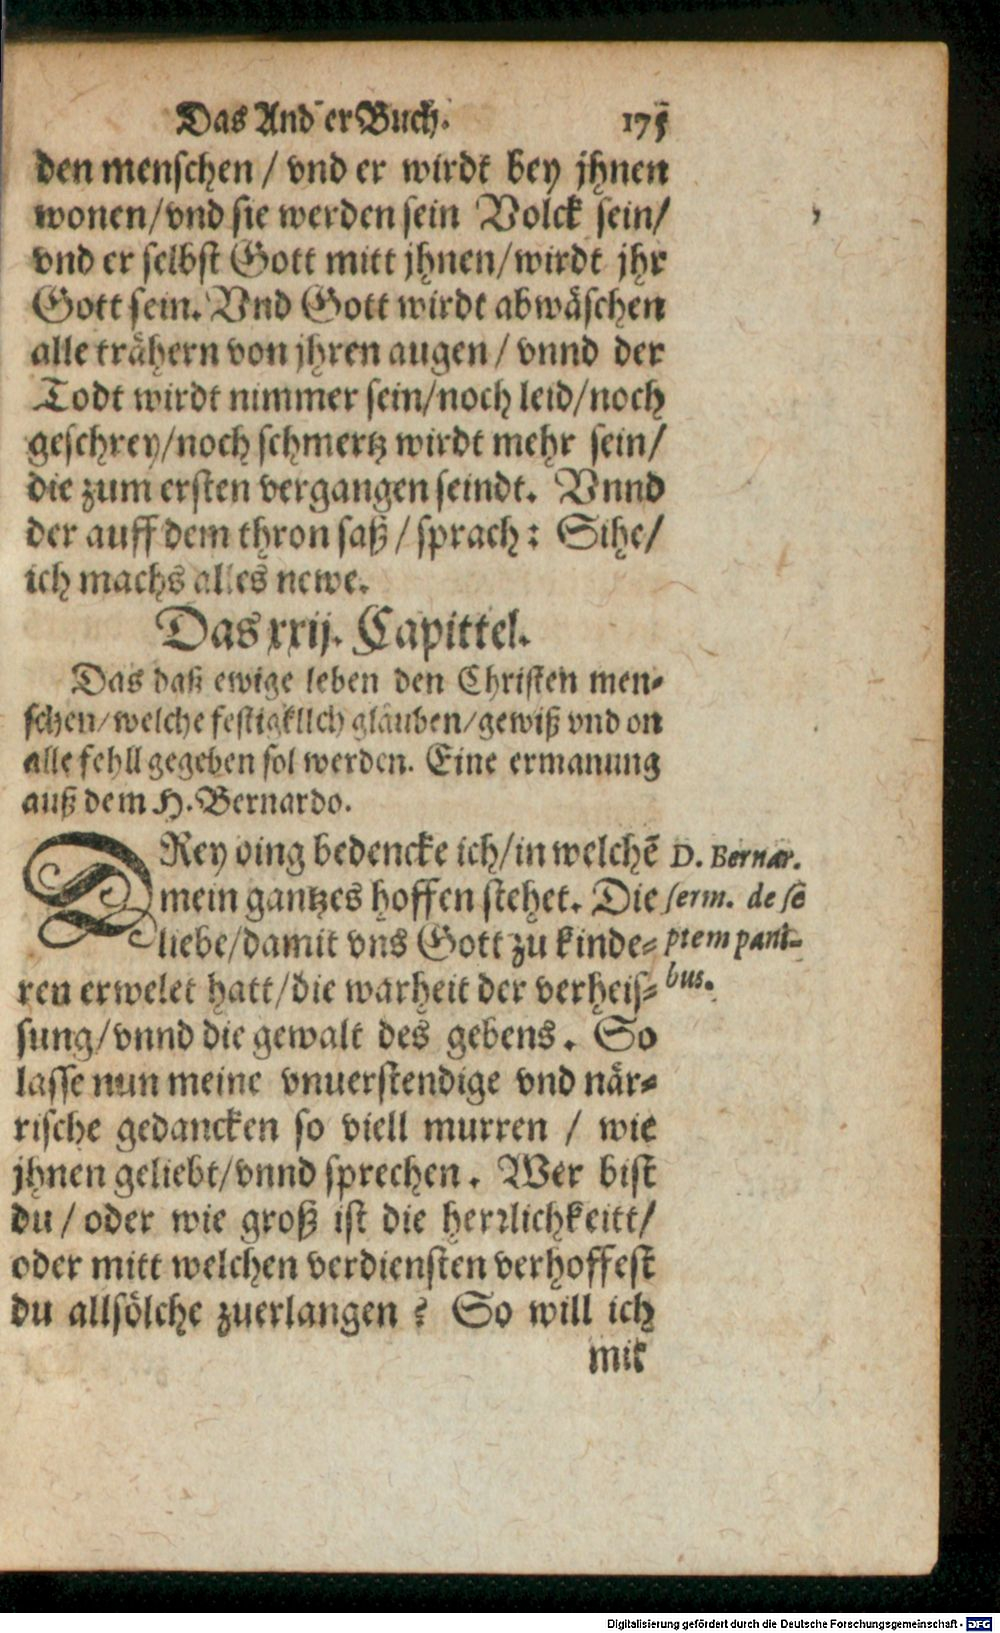 Das And er Buch. 175
den menschen / vnd er wirdt bey jhnen
wonen/vnd sie werden sein Volck sein/
vnd er selbst Gott mitt jhnen/wirdt jhr
Gott sein. Vnd Gott wirdt abwäschen
alle trähern von jhren augen / vnnd der
Todt wirdt nimmer sein/noch leid/noch
geschrey/noch schmertz wirdt mehr sein/
die zum ersten vergangen seindt. Vnnd
der auff dem thron saß / sprach: Sihe/
ich machs alles newe.
Das xxij. Capittel.
Das daß ewige leben den Christen men-
schen/welche festigklich glauben/gewiß vnd on
alle fehll gegeben sol werden. Eine ermanung
auß dem H. Bernardo.
DRey oing bedencke ich/in welchē
mein gantzes hoffen stehet. Die
liebe/damit vns Gott zu kinde-
ren erwelet hatt/die warheit der verheis-
sung/vnnd die gewalt des gebens. So
lasse nun meine vnuerstendige vnd när-
rische gedancken so viell murren / wie
jhnen geliebt/vnnd sprechen. Wer bist
du / oder wie groß ist die herrlichkeitt/
oder mitt welchen verdiensten verhoffest
du allsölche zuerlangen? So will ich
mit
D. Bernar.
serm. de sē
ptem pani-
bus.
Digitalisierung gefördert durch die Deutsche Forschungsgemeinschaft - DFG